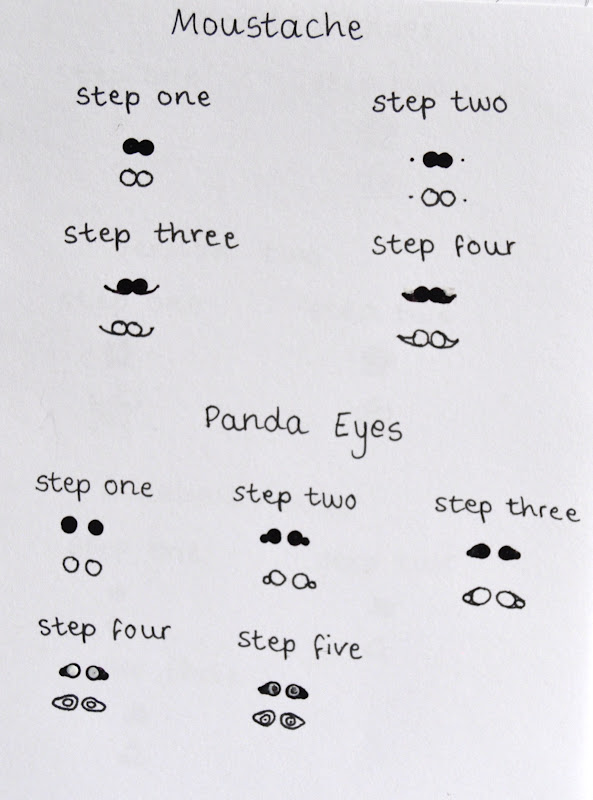 Moustache
step one
step two
step three
step four
Panda Eyes
step one
step two
step three
step four
step five